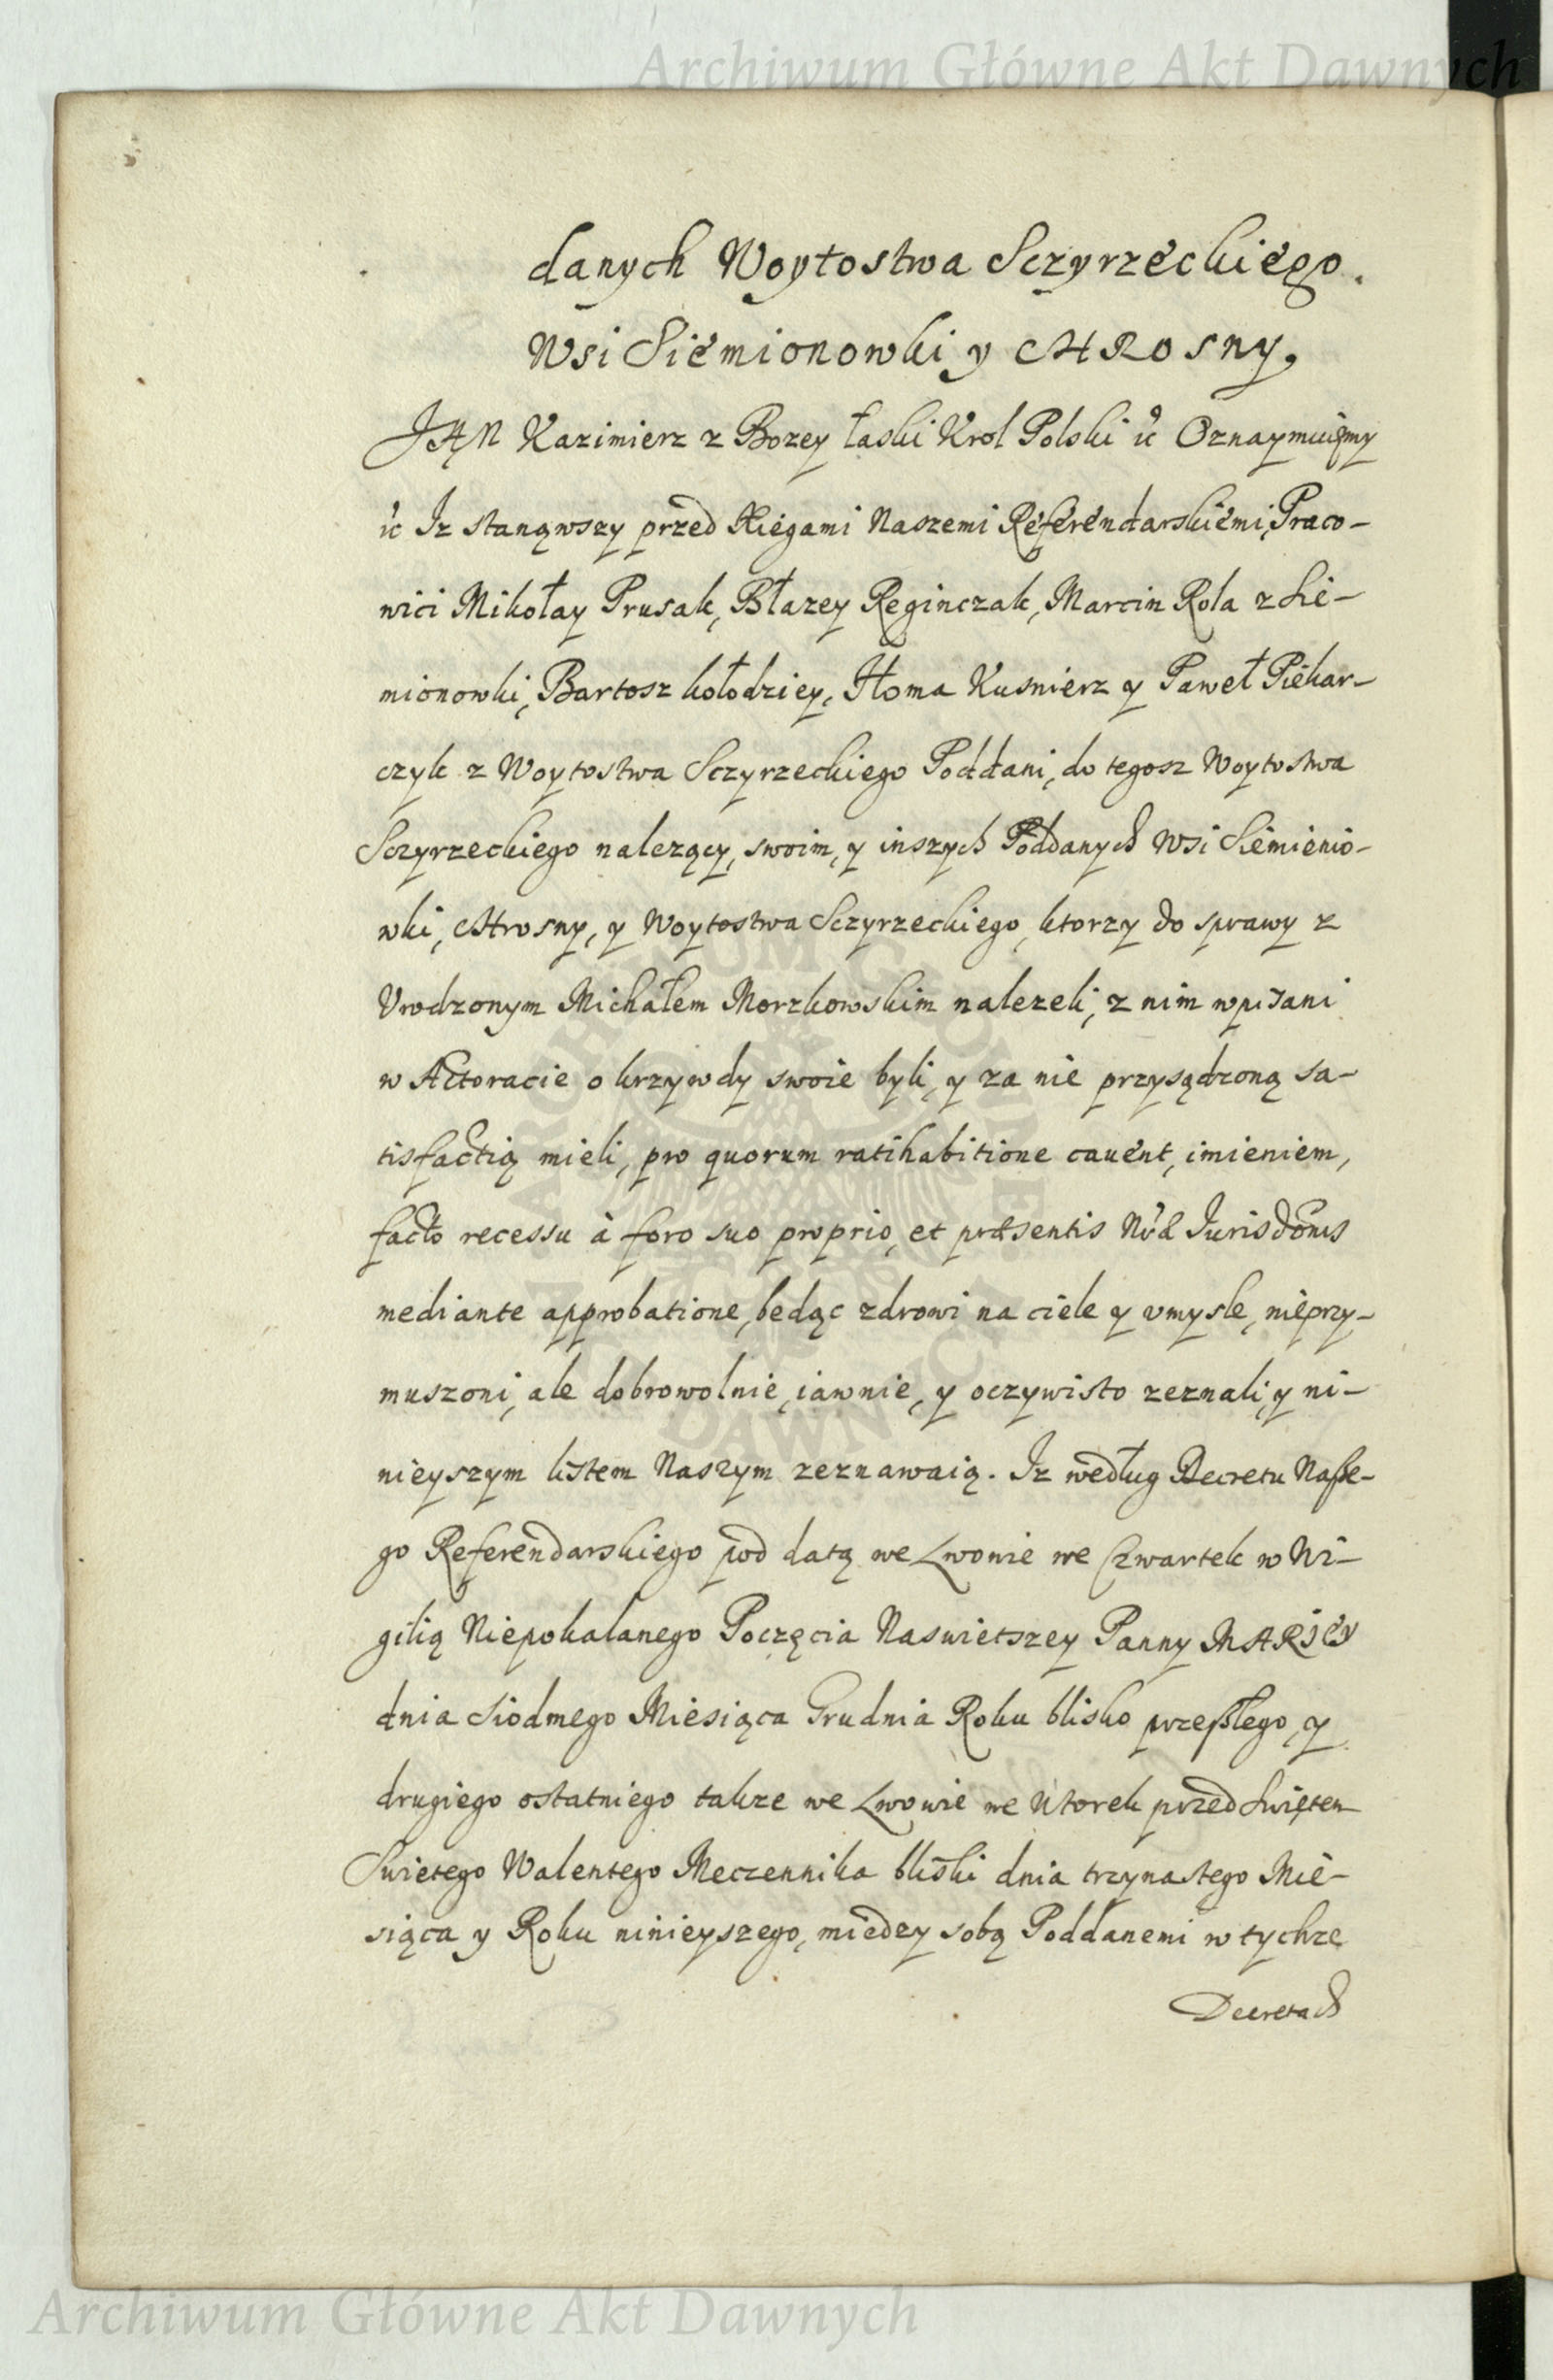 Archiwum Główne Akt Dawnych
danych Woytostwa Sczyrzeckiego.
Wsi Siemionowki y CHROSNY,
JAN Kazimierz z Bozey łaski Krol Polski &c Oznaymuięmy
&c Iz stanąwszy przed Xiegami Naszemi Referendarskiemi, Praco-
wici Mikołay Prusak, Błazey Reginczak, Marcin Rola z Sie-
mionowki, Bartosz kołodziey, Homa Kusnierz y Paweł Piekar-
czyk z Woytostwa Sczyrzeckiego Poddani, do tegosz Woytostwa
Sczyrzeckiego nalezący, swoim, y inszych Poddanych Wsi Siemienio-
wki, CHrosny, y Woytostwa Sczyrzeckiego, ktorzy do sprawy z
Vrodzonym Michałem Morzkowskim nalezeli, z nim wpisani
w Actoracie o krzywdy swoie byli, y za nie przysądzoną sa-
tisfactią mieli, pro quorum ratihabitione cauent, imieniem,
facto recessu à foro suo proprio, et præsentis Nræ Jurisdonis
mediante approbatione, bedąc zdrowi na ciele y vmysle, nieprzy-
muszoni, ale dobrowolnie, iawnie, y oczywisto zeznali, y ni-
nieyszym listem Naszym zeznawaią. Iz według Decretu Nasze-
go Referendarskiego pod datą we Lwowie we Czwartek w Wi-
gilią Niepokalanego Poczęcia Naswietszey Panny MARIEY
dnia Siodmego Miesiąca Grudnia Roku blisko przeszłego, y
drugiego ostatniego takze we Lwowie we Wtorek przed Swiętem
Swietego Walentego Meczennika bliski dnia trzynastego Mie-
siąca y Roku ninieyszego, miedzy sobą Poddanemi w tychze
Decretach
ARCHIWUM GŁÓWNE AKT DAWNYCH
Archiwum Główne Akt Dawnych